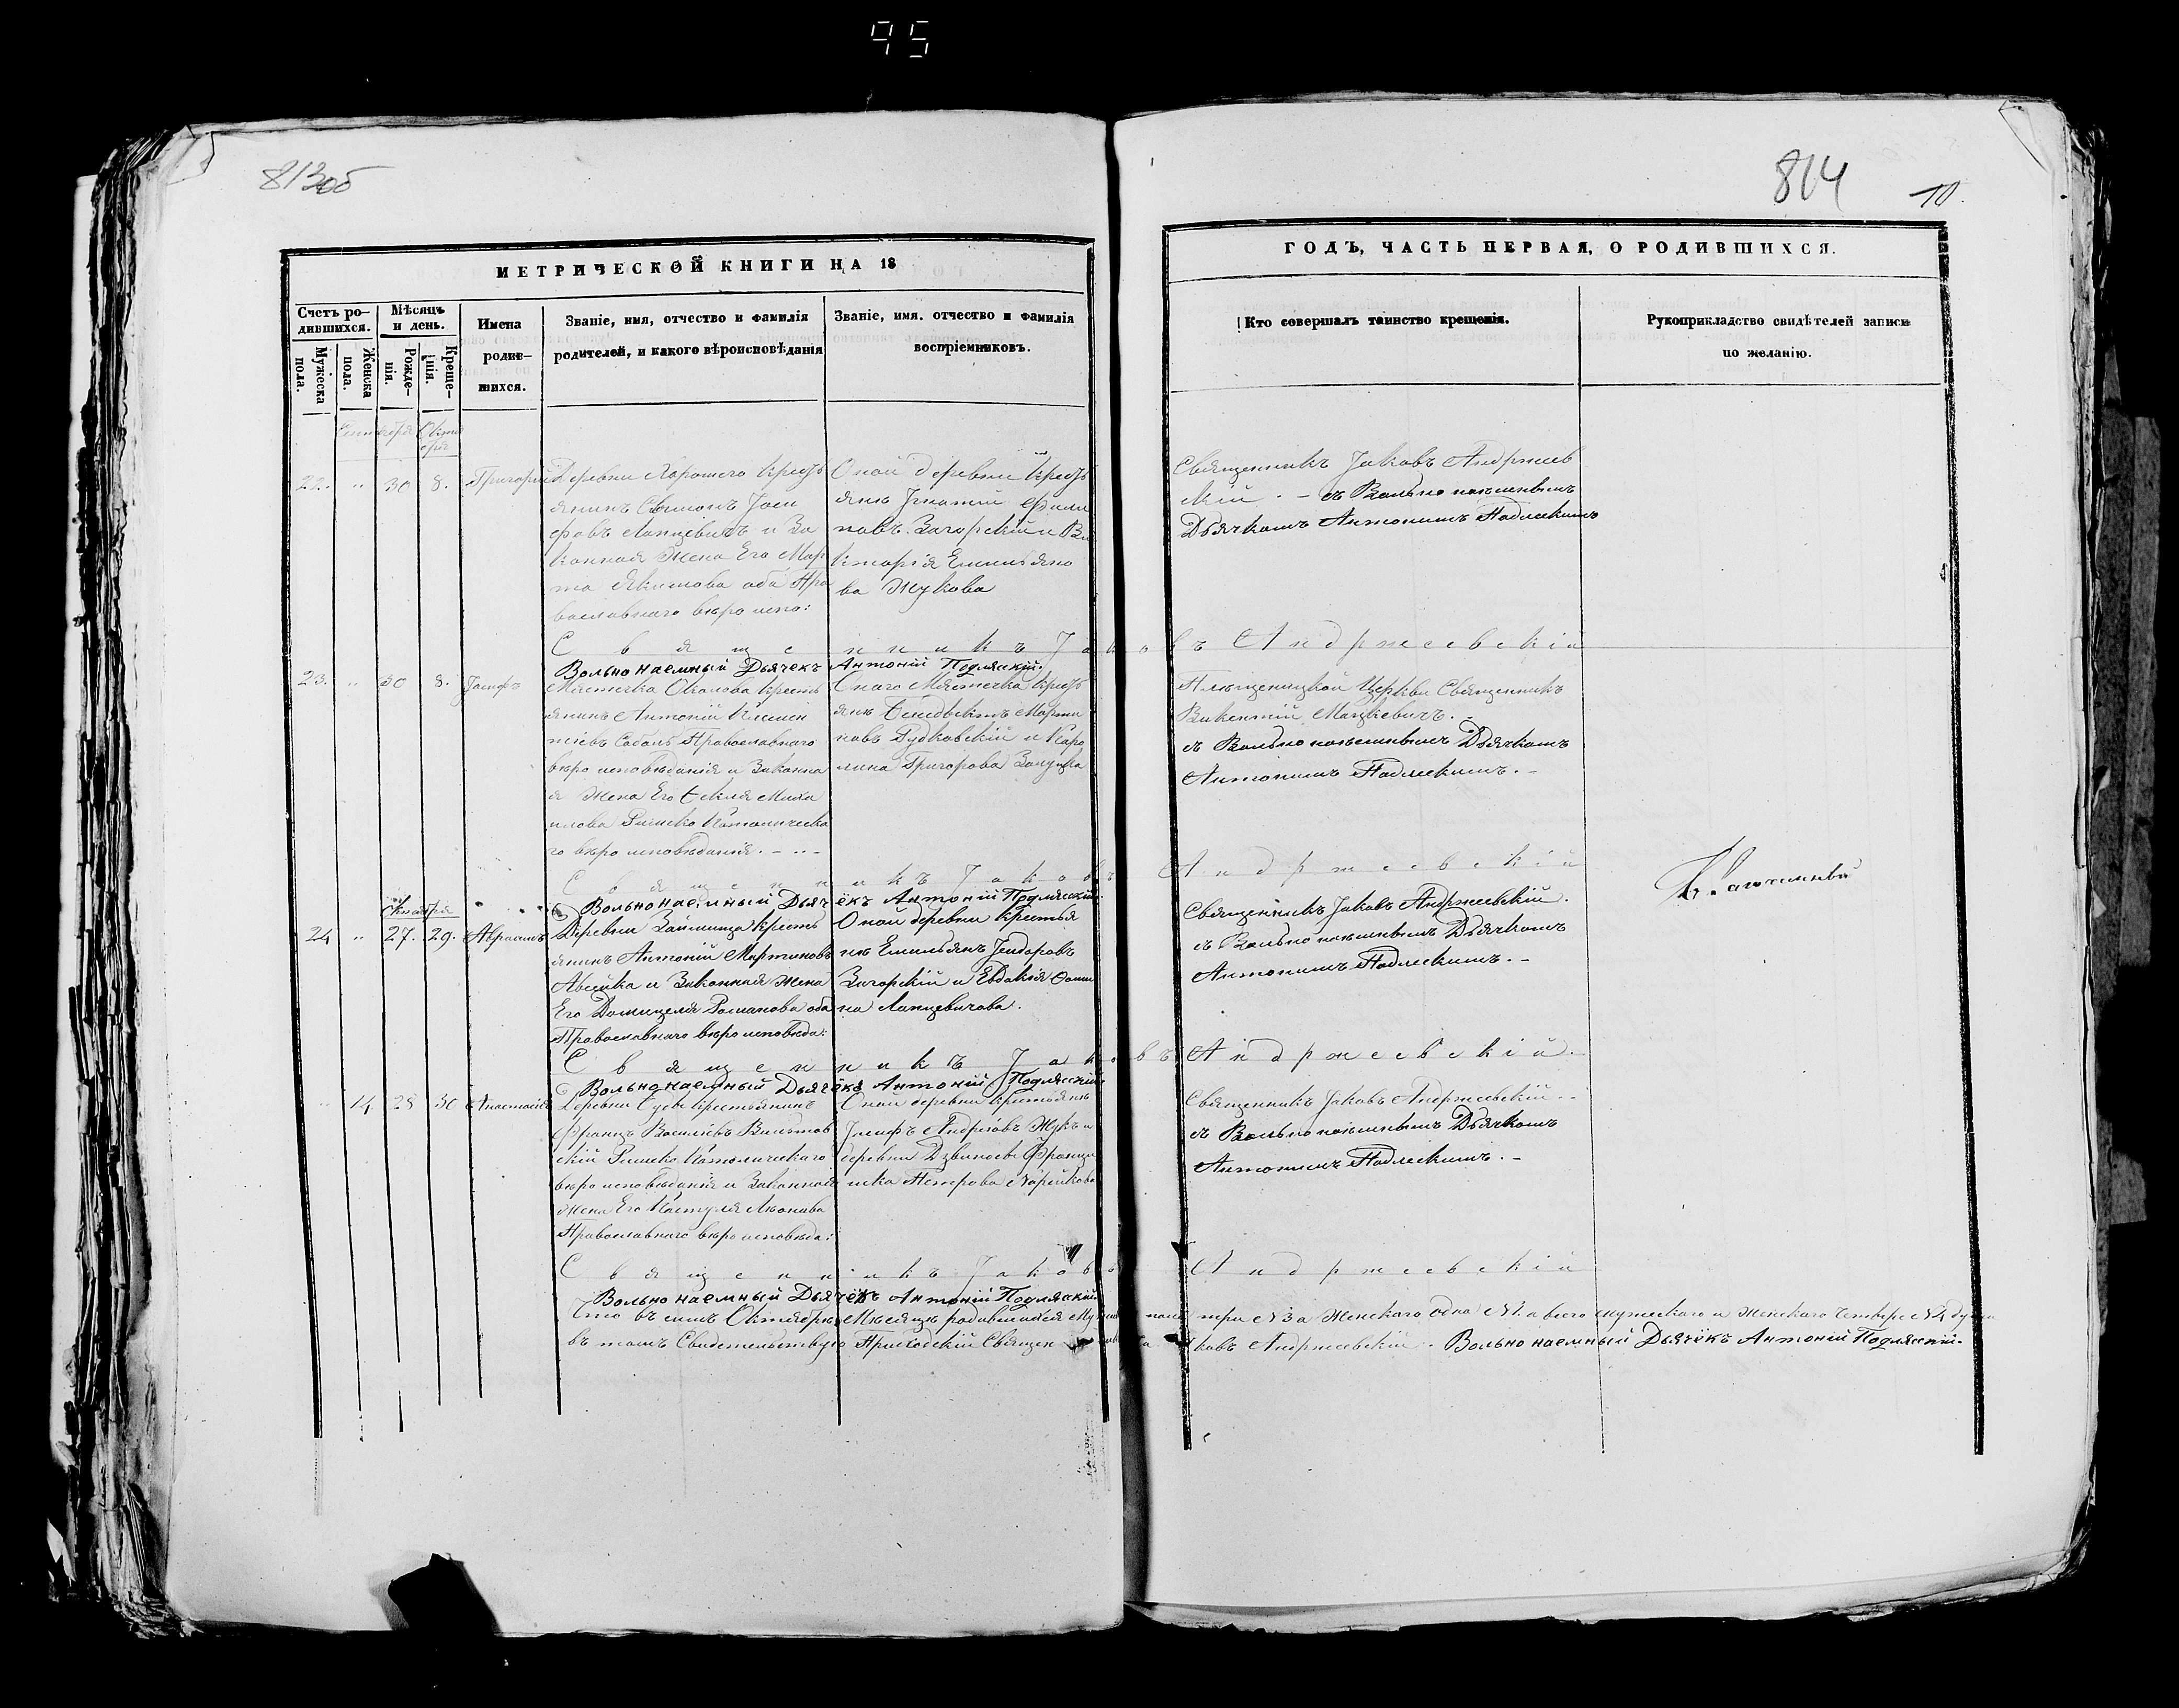 95
813об
814
10.
МЕТРИЧЕСКОЙ КНИГИ НА 18
ГОДЪ, ЧАСТЬ ПЕРВАЯ, О РОДИВШИХСЯ.
Счетъ ро-
дившихся.
Мужеска
пола.
Женска
пола.
Мѣсяцъ
и день.
Рожде-
нія.
Креще-
нія.
Имена
родив-
шихся.
Званіе, имя, отчество и фамилія
родителей, и какого вѣроисповѣданія
Званіе, имя. отчество и фамилія
воспріемниковъ.
Кто совершалъ таинство крещенія.
Рукоприкладство свидѣтелей записи
по желанію.
Сентября Октя
бря
22. " 30 8. Григорій
Деревни Хорошего Кресть
янинъ Симонъ Іоси
фовъ Лапцевичъ и За
конная Жена Его Мар
та Якимова оба Пра
вославнаго вѣро испо:
Оной деревни Кресть
янѣ Игнатій Фили
повъ Загорскій и Ви
кторія Емильяно
ва Жукова
Священникъ Іаковъ Андржеев
скій. – съ Вольно наемнымъ
Дьячкомъ Антонимъ Подлескимъ
Священникъ Іаковъ Андржеевскій
Вольно наемный Дьячекъ Антоній Подляскій.
23. " 30 8. Іосифъ
Мястечка Околова Кресть
янинъ Антоній Клемен
тіевъ Соболь Православнаго
вѣро исповѣданія и Законна
я Жена Его Текля Миха
илова Римско Католическа
го вѣро исповѣданія. – –
Онаго Мястечка Кресть
янѣ Бенедыктъ Марти
новъ Рудковскій и Каро
лина Григорова
Плещеницкой Церкви Священникъ
Викентій Мацкевичъ.
съ Вольно наемнымъ Дьячкомъ
Антонимъ Подлескимъ. –
Священникъ Іаковъ Андржеевскій
Вольно наемный Дьячёкъ Антоній Подляскій
Октября
24 " 27. 29. Авраамъ
Деревни Займища Кресть
янинъ Антоній Мартиновъ
Авсейка и Законная Жена
Его Домицеля Романова оба
Православнаго вѣро исповѣда:
Оной деревни Крестья
нѣ Емильянъ
Загорскій и Евдокія Фоми
на Лапцевичова.
Священникъ Іаковъ Андржеевскій.
съ Вольно наемнымъ Дьячкомъ
Антонимъ Подлескимъ. –
Священникъ Іаковъ Андржеевскій.
Вольно наемный Дьячёкъ Антоній Подляскій
" 14 28 30 Анастасія
Деревни Крестьянинъ
Францъ Василіевъ
скій Римско Католическаго
вѣро исповѣданія и Законная
Жена Его Настуля
Православнаго вѣро исповѣда:
Оной деревни Крестьянѣ
Іосифъ Андреовъ Жукъ и
деревни Франци
шка Петрова
Священникъ Іаковъ Андржеевскій. –
съ Вольно наемнымъ Дьячкомъ
Антонимъ Подлескимъ. –
Священникъ Іаковъ Андржеевскій
Вольно наемный Дьячёкъ Антоній Подляскій.
Что въ семъ Октябрѣ Мѣсяцѣ родившихся пола три №3 а Женскаго одна №1. а всего мужескаго и женскаго четыре №4
въ томъ Свидетельствую Приходскій Священ Андржеевскій. Вольно наемный Дьячёкъ Антоній Подляскій.